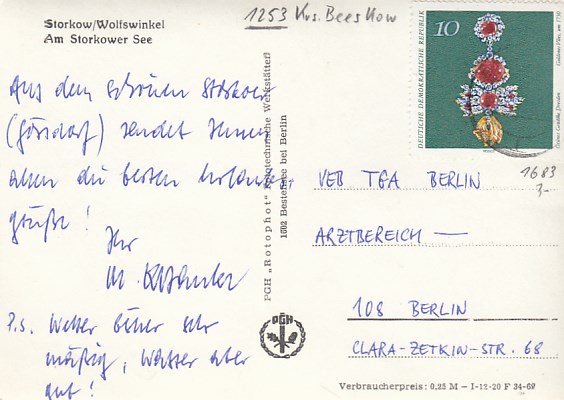 Storkow/Wolfswinkel
Am Storkower See
1253 Krs. Beeskow
Aus dem schönen Storkow
(Görsdorf) sendet Ihnen
allen die besten
grüße!
Ihr
M.
P.S. Wetter bisher sehr
mäßig, Wasser aber
gut!
PGH „Rotophot“ Fototechnische Werkstätten
1502 Bestensee bei Berlin
PGH
10
DEUTSCHE DEMOKRATISCHE REPUBLIK
Goldenes Vlies, um
Grünes Gewölbe Dresden
1683
3,-
VEB TGA BERLIN
ARZTBEREICH —
108 BERLIN
CLARA-ZETKIN-STR. 68
Verbraucherpreis: 0,25 M – I-12-20 F 34-69